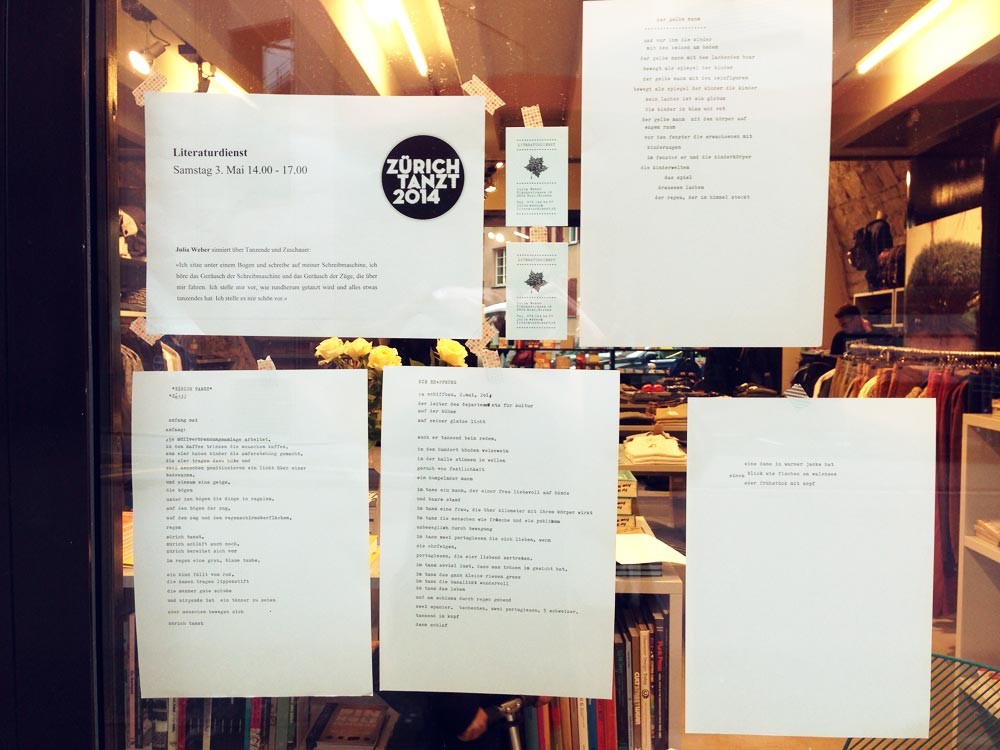 Literaturdienst
Samstag 3. Mai 14.00 - 17.00
ZÜRICH
TANZT
2014
Julia Weber sinniert über Tanzende und Zuschauer:
«Ich sitze unter einem Bogen und schreibe auf meiner Schreibmaschine, ich
höre das Geräusch der Schreibmaschine und das Geräusch der Züge, die über
mir fahren. Ich stelle mir vor, wie rundherum getanzt wird und alles etwas
tanzendes hat. Ich stelle es mir schön vor.»
LITERATURDIENST
Julia Weber
LITERATURDIENST
Julia Weber
der gelbe mann
und vor ihm die kinder
mit den beinen am boden
der gelbe mann mit dem lachenden haar
bewegt als spiegel der kinder
der gelbe mann mit den beinfiguren
bewegt als spiegel der kinder die kinder
sein lachen ist ein globus
die kinder in blau und rot
der gelbe mann mit den körper auf
engem raum
vor dem fenster die erwachsenen mit
kinderaugen
im fenster er und die kinderkörper
die kinderwelten
das spiel
draussen lachen
der regen, der im himmel steckt
"ZÜRICH TANZT"
anfang mai
anfang:
die müllverbrennungsanlage arbeitet,
in den kaffee trinken die menschen kaffee,
aus eier haben kinder die
die eier tragen dazu bike und
zwei menschen positionieren ein licht über einer
badewanne,
und einsam eine geige,
die bögen
unter den bögen die dinge in regalen,
auf den bögen der zug,
auf dem zug und den regenschirmoberflächen,
regen
zürich tanzt,
zürich schläft auch noch,
zürich bereitet sich vor
im regen eine grau, blaue taube,
ein kind füllt vom rad,
die damen tragen lippenstift
die männer gute schuhe
und nirgends hat ein tänzer zu sehen
aber menschen bewegen sich
zürich tanzt
DIE ERÖFFNUNG
im schiffbau, 2.mai, 2014
der leiter des departements für kultur
auf der bühne
auf seiner glatze licht
auch er tanzend beim reden,
in den hundert händen weisswein
in der halle stimmen in wellen
geruch von festlichkeit
ein humpelnder mann
im tanz ein mann, der einer frau liebevoll auf hände
und haare stand
im tanz eine frau, die über kilometer mit ihrem körper wirkt
im tanz die menschen wie frösche und ein publikum
unbeweglich durch bewegung
im tanz zwei portugiesen die sich lieben, wenn
sie ohrfeigen,
portugiesen, die eier liebend zertreten,
im tanz soviel lust, dass man tränen im gesicht hat,
im tanz das ganz kleine riesen gross
im tanz die banalität wundervoll
im tanz das leben
und am schluss durch regen gehend
zwei spanier, tschechen, zwei portugiesen, 5 schweizer,
tanzend im kopf
dann schlaf
eine dame in warmer jacke hat
einen blick wie fischen am walensee
oder frühstück mit zopf